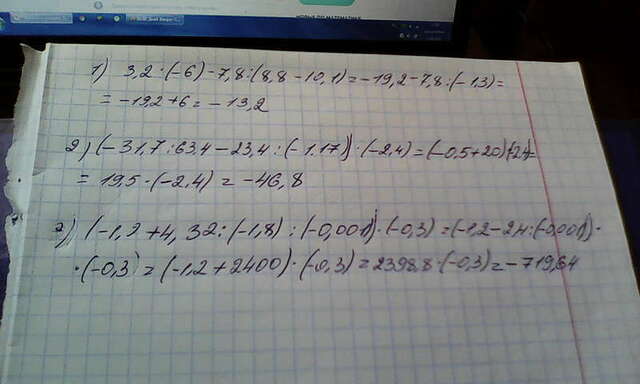 1) 3,2 · (-6) - 7,8 : (8,8 - 10,1) = -19,2 - 7,8 : (-1,3) =
= -19,2 + 6 = -13,2
2) (-31,7 : 63,4 - 23,4 : (-1,17)) · (-2,4) = (-0,5 + 20)(-2,4) =
= 19,5 · (-2,4) = -46,8
2) (-1,2 + 4,32 : (-1,8) : (-0,001)) · (-0,3) = (-1,2 - 2,4 : (-0,001)) ·
· (-0,3) = (-1,2 + 2400) · (-0,3) = 2398,8 · (-0,3) = -719,64